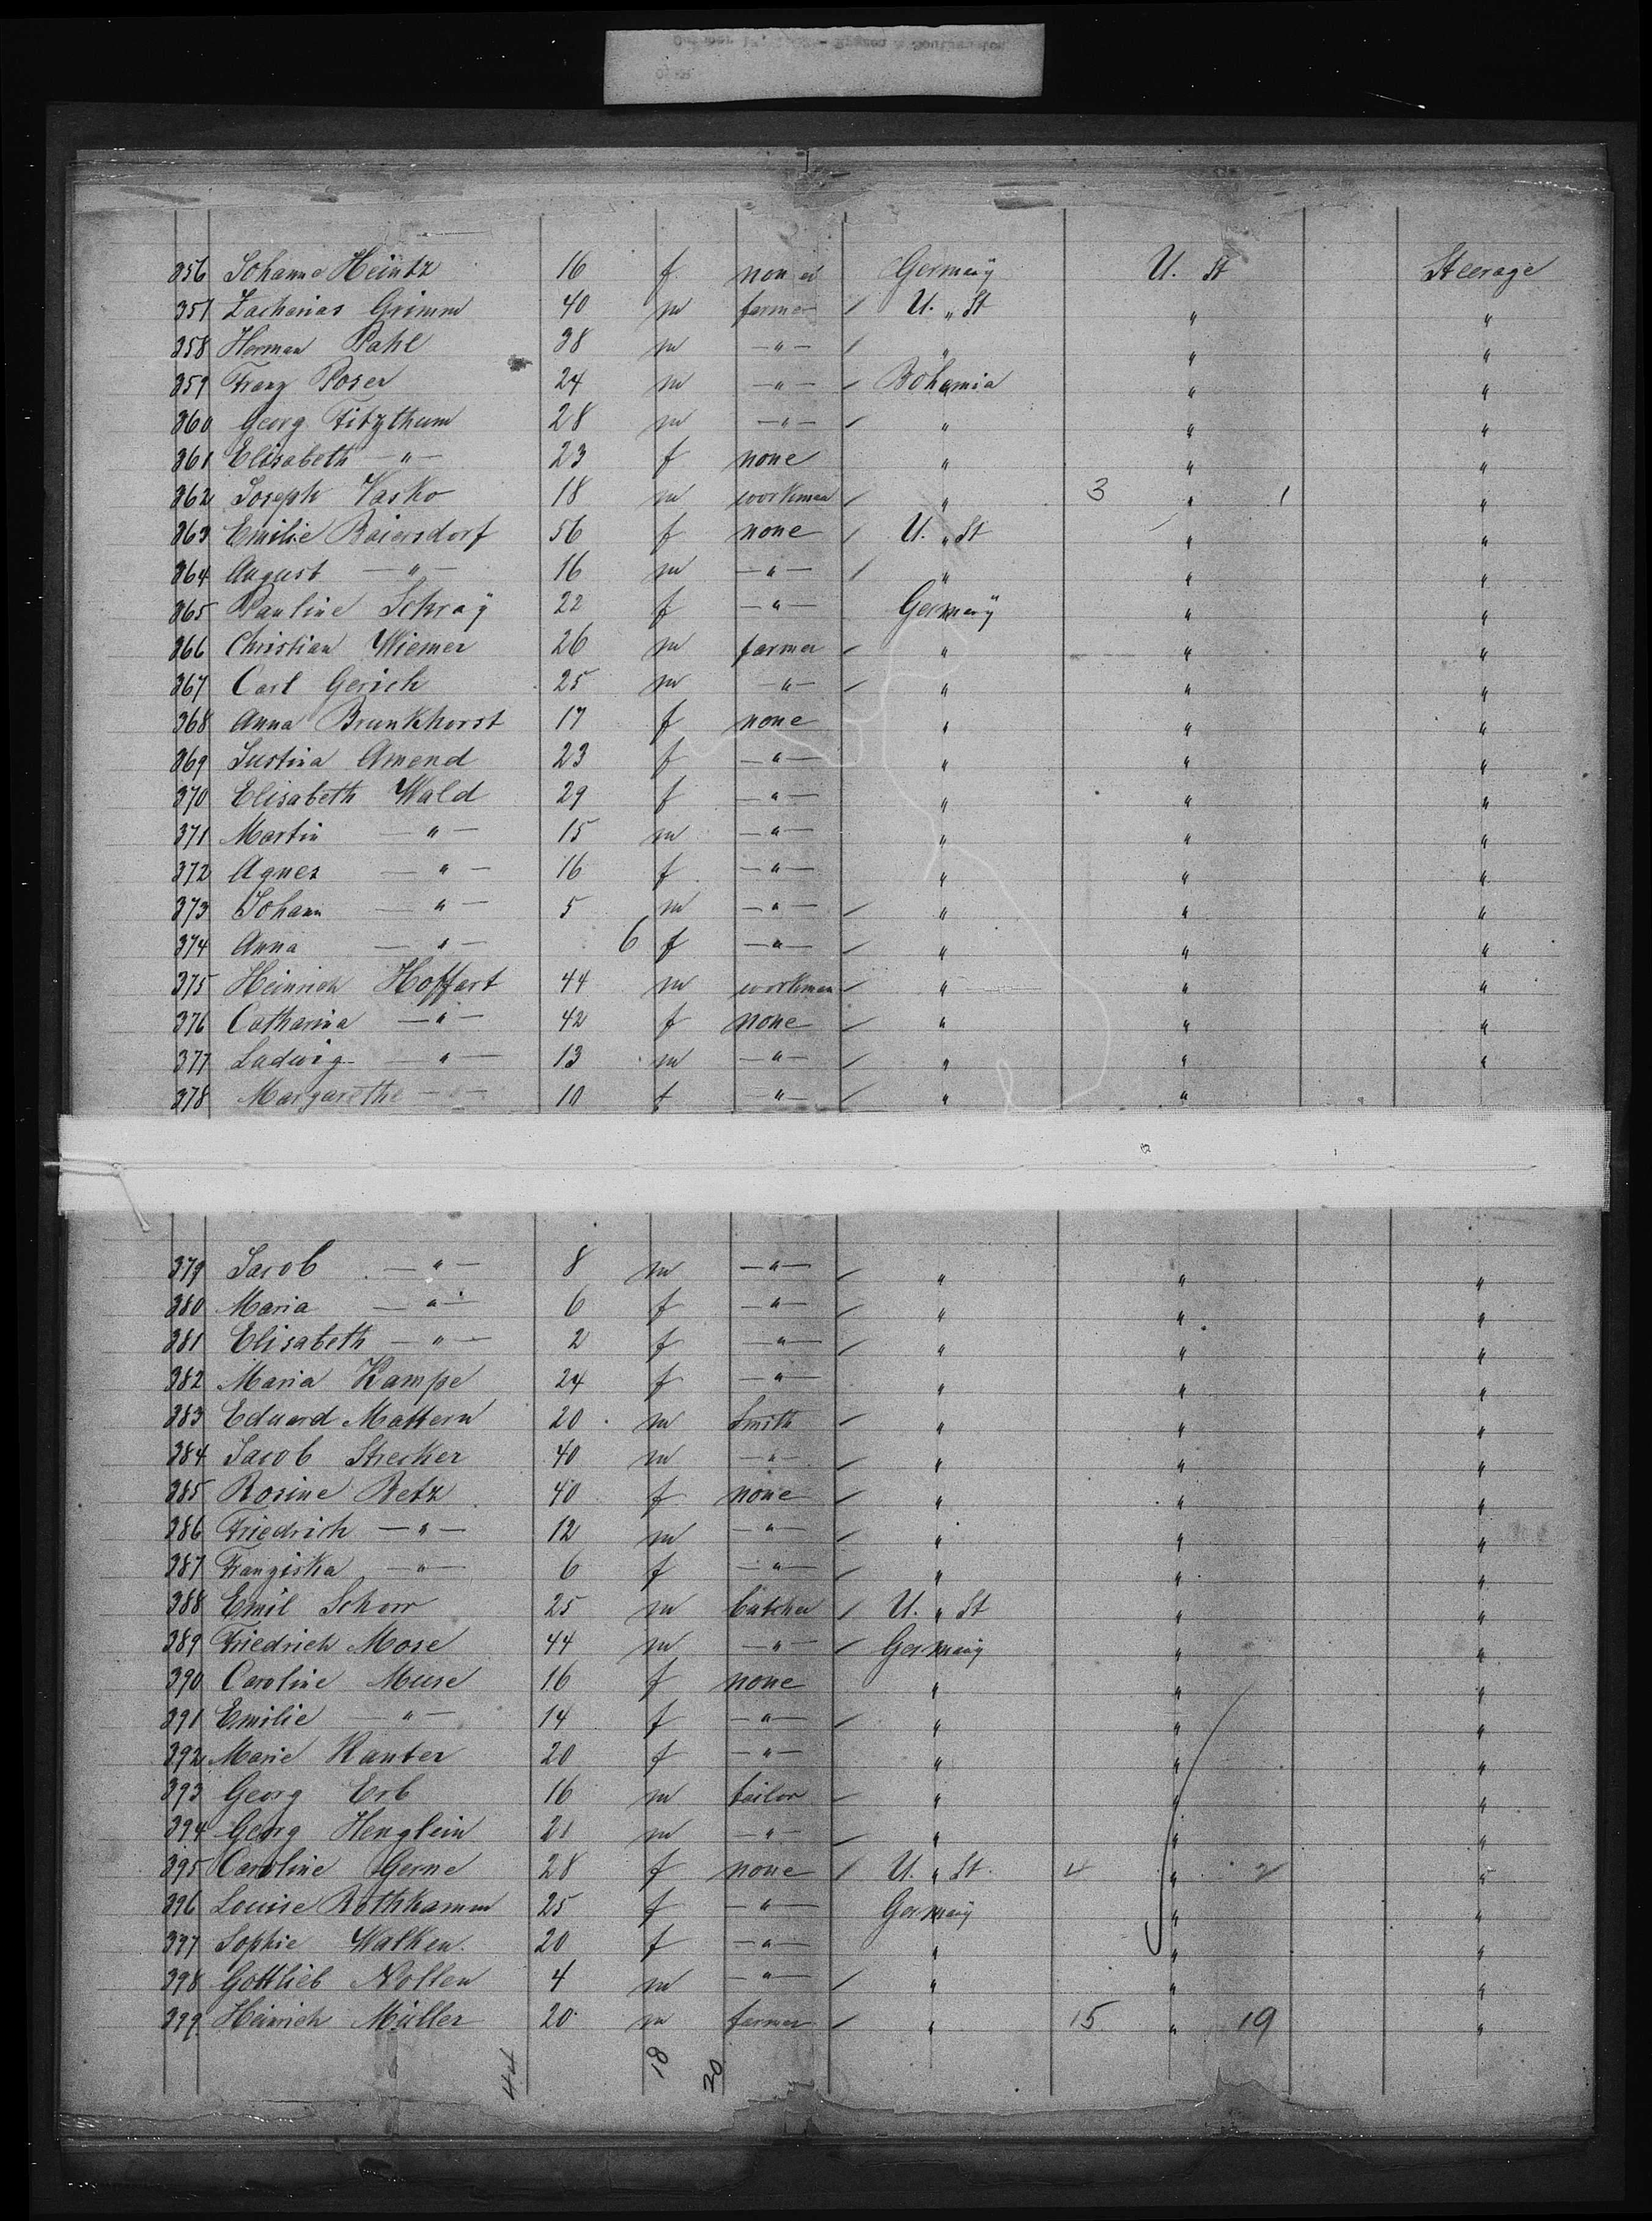 356 Johanna Heintz 16 f none Germany U. St Steerage
357 Zacharias Grimm 40 m farmer / U. " St " "
358 Herman Pahl 38 m —"— / " " "
359 Franz Poser 24 m —"— / Bohemia " "
360 Georg Fitzthum 28 m —"— / " " "
361 Elisabeth —"— 23 f none " " "
362 Joseph Vasko 18 m workman / " 3 " 1 "
363 Emilie Baiersdorf 56 f none / U. " St " "
364 August —"— 16 m —"— / " " "
365 Pauline Schraÿ 22 f —"— Germany " "
366 Christian Wiemer 26 m farmer / " " "
367 Carl Gerich 25 m —"— / " " "
368 Anna Brunkhorst 17 f none " " "
369 Justina Amend 23 f —"— " " "
370 Elisabeth Wald 29 f —"— " " "
371 Martin —"— 15 m —"— " " "
372 Agnes —"— 16 f —"— " " "
373 Johann —"— 5 m —"— / " " "
374 Anna —"— 6 f —"— / " " "
375 Heinrich Hoffart 44 m workman / " " "
376 Catharina —"— 42 f none / " " "
377 Ludwig —"— 13 m —"— / " " "
378 Margarethe —"— 10 f —"— / " "
379 Jacob —"— 8 m —"— / " " "
380 Maria —"— 6 f —"— / " " "
381 Elisabeth —"— 2 f —"— / " " "
382 Maria Kampe 24 f —"— " " "
383 Eduard Mattern 20 m Smith / " " "
384 Jacob Strecker 40 m —"— / " " "
385 Rosine Betz 40 f none / " " "
386 Friedrich —"— 12 m —"— / " " "
387 Franziska —"— 6 f —"— / " " "
388 Emil Schorr 25 m butcher / U. " St " "
389 Friedrich Mose 44 m —"— / Germany " "
390 Caroline Muse 16 f none " " "
391 Emilie —"— 14 f —"— / " " "
392 Marie Kanter 20 f —"— " " "
393 Georg Erb 16 m tailor / " " "
394 Georg Henglein 21 m —"— / " " "
395 Caroline Gerne 28 f none / U. " St. 4 " 2 "
396 Louise Rothhamm 25 f —"— Germany " "
397 Sophie Walken 20 f —"— " " "
398 Gottlieb Nollen 4 m —"— / " " "
399 Heinrich Müller 20 m farmer / " 15 " 19 "
44 18 20